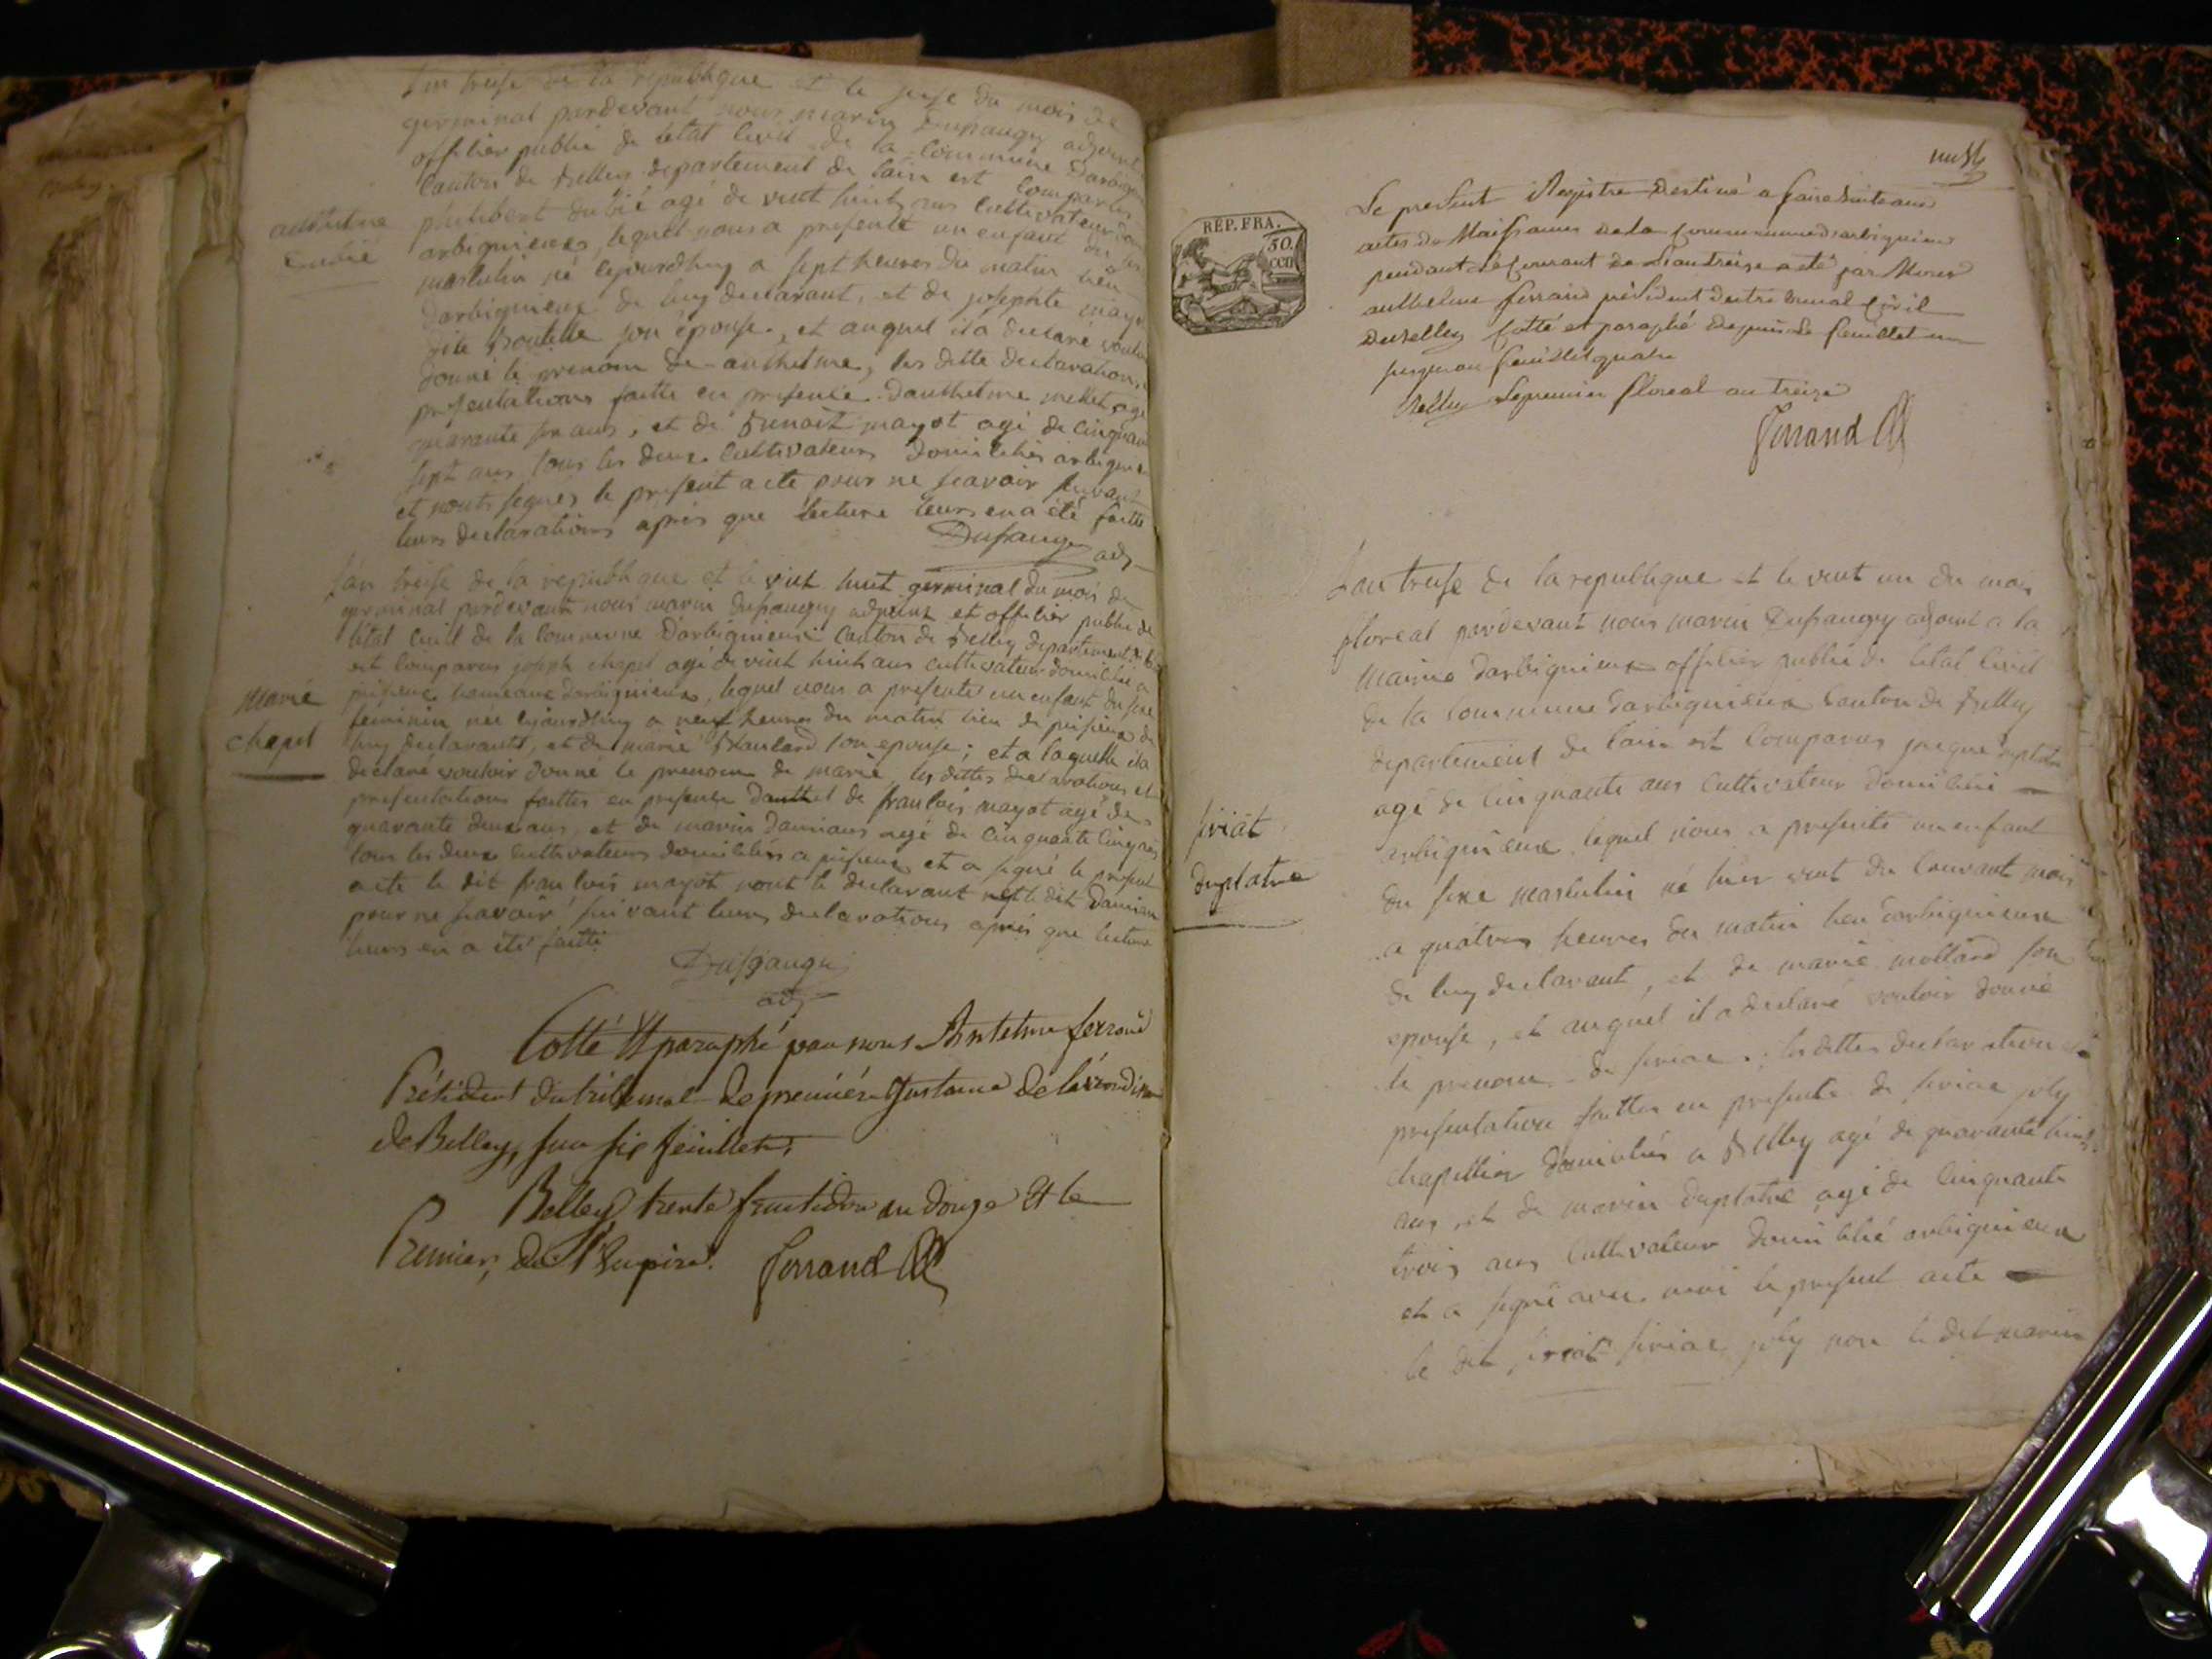 l'an treise de la republique et le seise du mois de
germinal pardevant nous marin Dufaugey adjoint
offilier public de letat civil de la commune darbignieux
canton de Belley departement de lain est comparus
philibert dubié agé de vint huit ans cultivateur
arbignieux, lequel nous a presenté un enfant du sexe
masculin né cejourdhuy a sept heures du matin lieu
darbignieux de luy declarant, et de josephte
dite son épouse, et auquel il a declaré vouloir
donné le prenom de anthelme, les ditte declaration,
presentations faitte en presence danthelme agé
quarante ans, et de Benoit mayot agé de cinquante
sept ans tous les deux cultivateurs domiciliés arbignieux
et nont signés le present acte pour ne scavoir suivant
leurs declarations après que lecture leurs en a été faitte
Dufaugey adj
anthelme
Dubié
l'an treise de la republique et le vint huit germinal du mois de
germinal pardevant nous marin dufaugey adjoint et offilier public de
létat civil de la commune D'arbignieux canton de Belley departement de lain
est comparus joseph chapel agé de vint huit ans cultivateur domicilié a
hameau darbignieux, lequel nous a presenté un enfant du sexe
feminin née cejourdhuy a neuf heures du matin lieu de de
luy declarant, et de marie son epouse; et a laquelle il a
declaré vouloir donné le prenom de marie, les dittes declarations et
presentations faittes en presence de francois mayot agé de
quarante deux ans, et de marin Damians agé de cinquante cinq ans
tous les deux cultivateurs domiciliés a et a signé le present
acte le dit francois mayot nont le declarant ny le dit Damian
pour ne scavoir suivant leurs declarations après que lecture
leurs en a été faitte
Dufaugey
adj
marie
chapel
Cotté & paraphé par nous Anthelme ferrand
Président du tribunal de premiére Instance de l'arrondissement
de Belley, sur six feuillets,
Belley trente fructidor an douze & le
Premier, de l'Empire. Ferrand
RÉP. FRA.
50.
cen
Le present Registre destiné a faire suite aux
actes de Naissances de la Commune darbignieu
pendant le courant de L'an treize a été par Nous
anthelme ferrand président du tribunal Civil
de Belley Cotté et paraphé depuis le feuillet un
jusquau feuillet quatre
Belley Le premier floreal an treize
Ferrand
L'an treise de la republique et le vint un du mois
floreal pardevant nous marin Dufaugey adjoint a la
mairie darbignieux offilier public de létat civil
de la commune darbignieux canton de Belley
departement de lain est comparus jacque duplatre
agé de cinquante ans cultivateur domicilié
arbignieux lequel nous a presenté un enfant
du sexe masculin né hier vint du courant mois
a quatres heures du matin lieu darbignieux
de luy declarant, et de marie mollard son
epouse, et auquel il a declaré vouloir donné
le prenom de siriac; les dittes declaration et
presentation faittes en presente de siriac joly
chapellier domicilié a Belley agé de quarante huit
ans, et de marin duplatre agé de cinquante
trois ans cultivateur domicilié arbignieux
et a signé avec moi le present acte
le dit siriac joly non le dit marin
siriat
duplatre